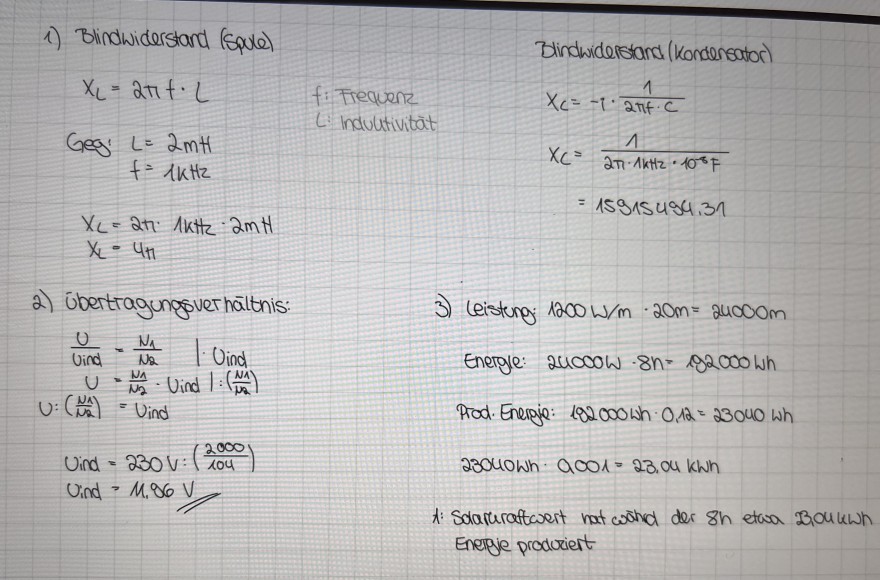 1) Blindwiderstand (Spule)
X_L = 2π f · L
f: Frequenz
L: Induktivität
Geg: L = 2mH
f = 1kHz
X_L = 2π · 1kHz · 2mH
X_L = 4π
Blindwiderstand (Kondensator)
X_C = -i · 1/(2πf · C)
X_C = 1/(2π · 1kHz · 10^-6 F)
= 15915494.31
2) Übertragungsverhältnis:
U/Uind = N1/N2 | · Uind
U = N1/N2 · Uind | : (N1/N2)
U : (N1/N2) = Uind
Uind = 230 V : (2000/104)
Uind = 11.96 V
3) Leistung: 1200 W/m · 20m = 24000m
Energie: 24000W · 8h = 192000 Wh
Prod. Energie: 192000Wh · 0,12 = 23040 Wh
23040Wh · 0,001 = 23,04 kWh
der 8h etwa 23,04 kWh
Energie produziert